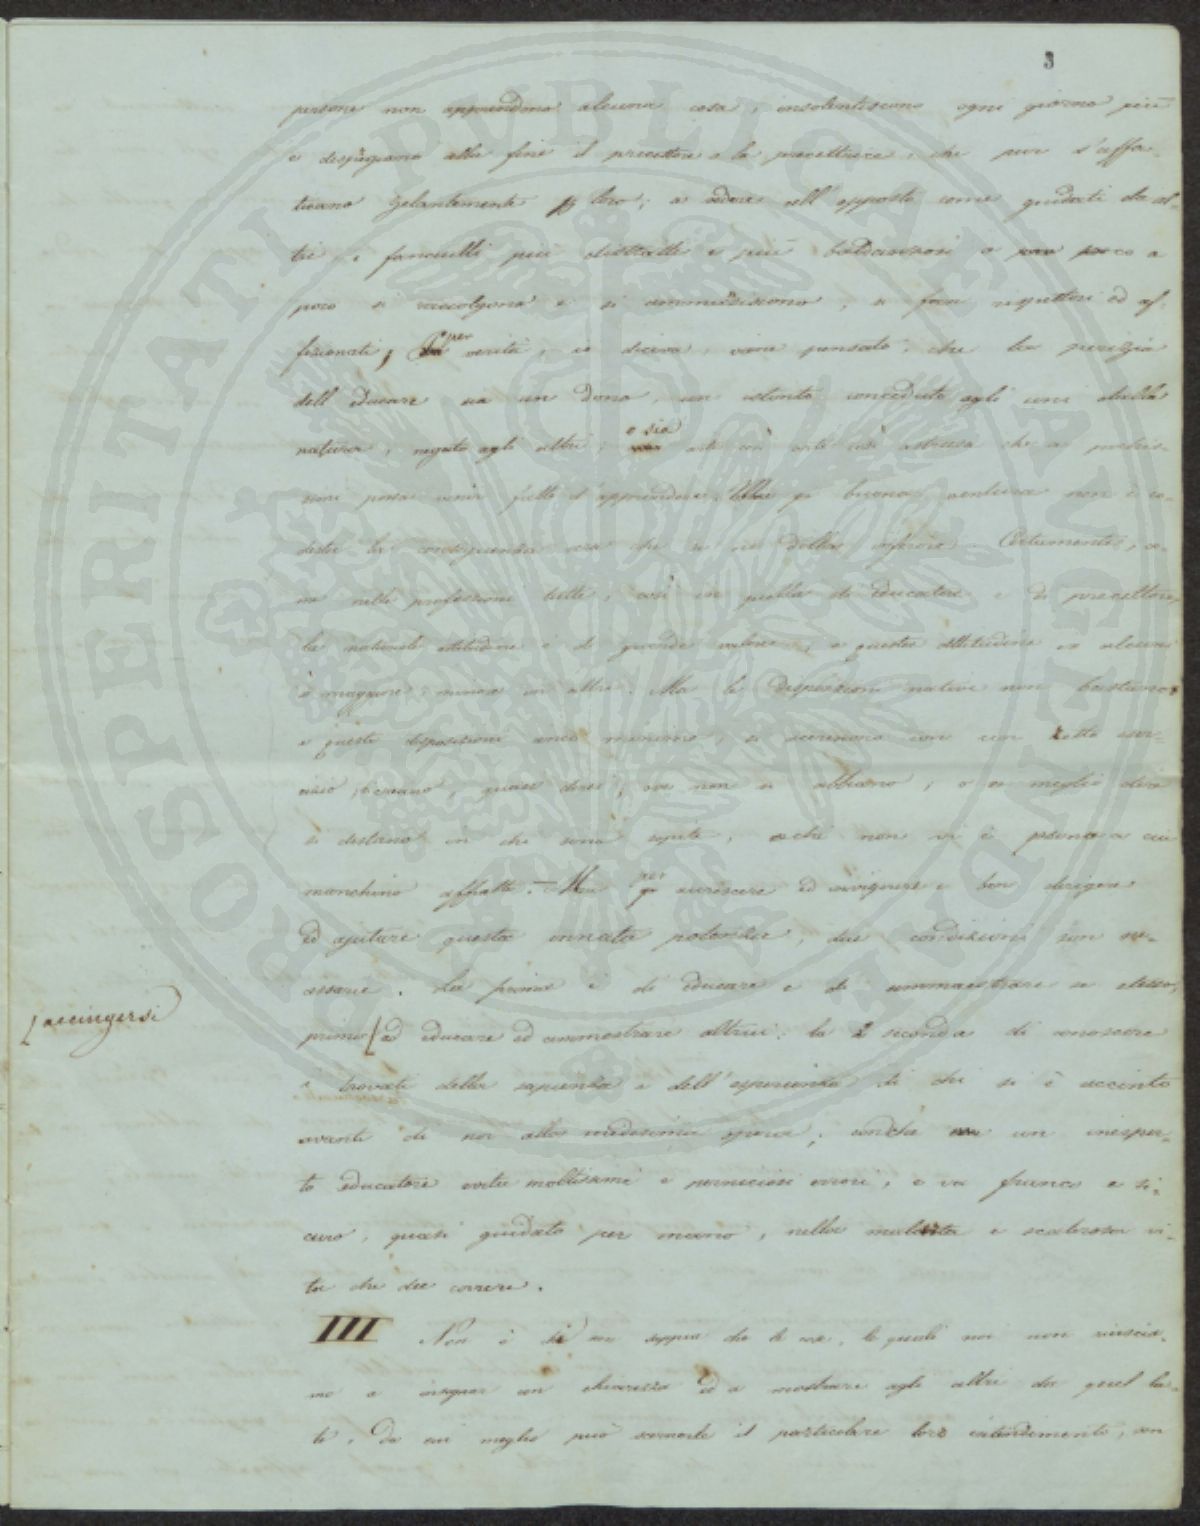 3
persone non apprendono alcuna cosa, insolentiscono ogni giorno più
e dispregiano alla fine il precettore o la precettrice, che pur s'affa-
ticano zelantemente p loro; a vedere all opposto come guidati da al-
tri i fanciulli più distratti e più a poco a
poco si raccolgono e si ammansiscono, si fan rispettosi ed af-
fezionati, per verità, io diceva, vien pensato, che la perizia
dell educare sia un dono, un istinto conceduto agli uni dalla
natura, negato agli altri; o sia arte così astrusa che a pochis-
simi possa venir fatto d'apprendere. Ma p buona ventura non è co-
desta la conseguenza vera che se ne debba inferire. Certamente, co-
me nelle professioni tutte, così in quella di educatore e di precettore,
la naturale attitudine è di grande valore, e questa attitudine in alcuni
è maggiore, minore in altri. Ma le disposizioni native non bastano,
e queste disposizioni anco minime, si accrescono con un retto eser-
cizio, si creano, quasi direi, ove non si abbiano, o a meglio dire
si destano in chi sono sopite, chè non vi è persona a cui
manchino affatto. — Ma per accrescere ed invigorire e ben dirigere
ed ajutare questa innata potenza, due condizioni son ne-
cessarie. La prima è di educare e di ammaestrare se stesso,
prima [ad educare ed ammaestrare altrui: la 2 seconda di conoscere
[accingersi
i trovati della sapienza e dell'esperienza di chi si è accinto
avanti di noi alla medesima opera; un inesper-
to educatore evita moltissimi e perniciosi errori, e va franco e si-
curo, quasi guidato per mano, nella malcerta e scabrosa vi-
ta che dee correre.
III Non è si sa seppur che le cose, le quali noi non riuscia-
mo a insegnar con chiarezza ed a mostrare agli altri da quel la-
to, da cui meglio può scernerle il particolare loro intendimento, son